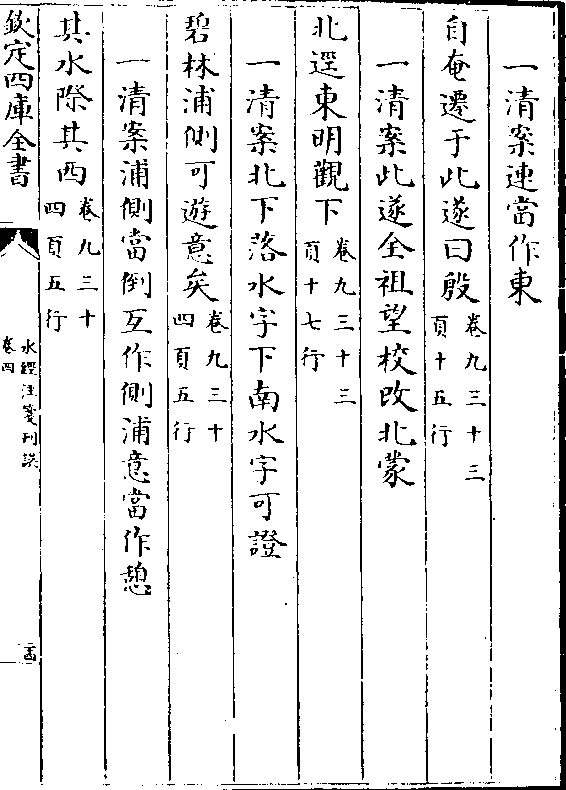 一清案連當作東
自奄遷于此遂曰殷卷九三十三頁十五行
一清案此遂全祖望校改北蒙
北逕東明觀下卷九三十三頁十七行
一清案北下落水字下南水字可證
碧林浦側可遊意矣卷九三十四頁五行
一清案浦側當倒互作側浦意當作憩
其水際其西卷九三十四頁五行
欽定四庫全書
水經注箋刊誤
卷四